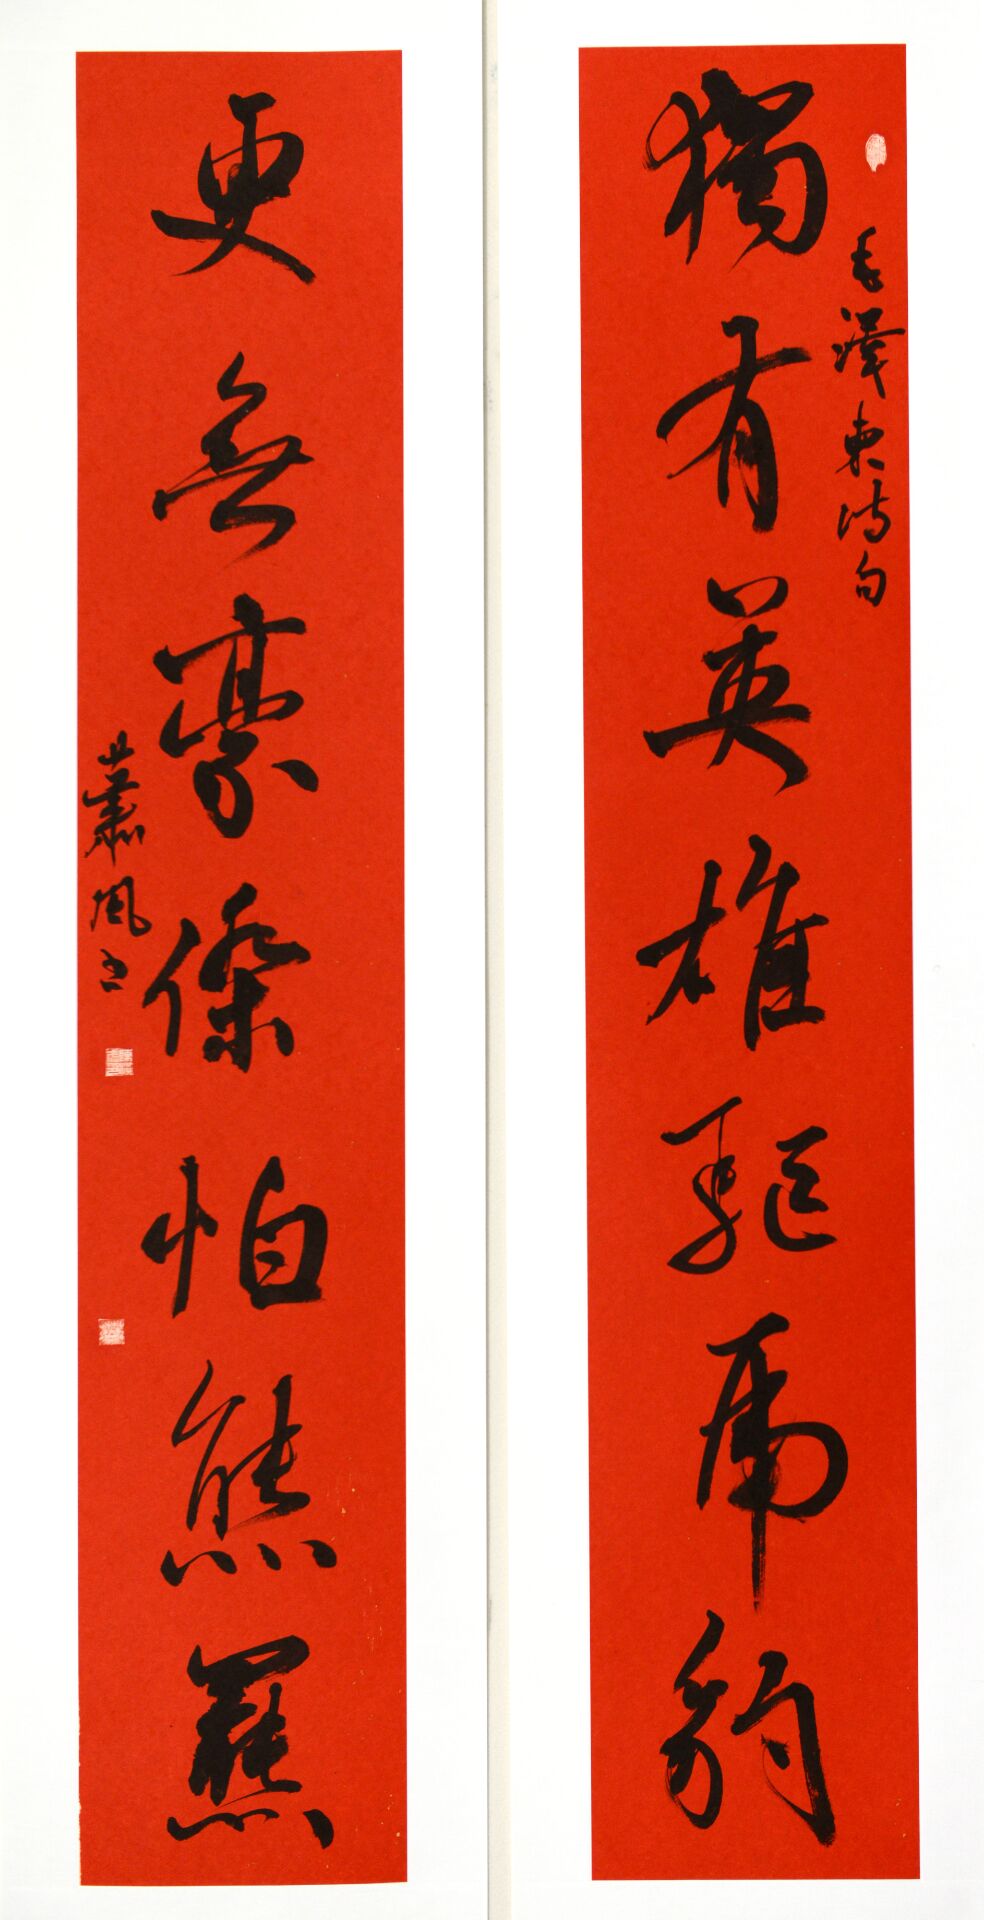 毛澤東詩句
獨有英雄驅虎豹
更無豪傑怕熊羆
蕭風書